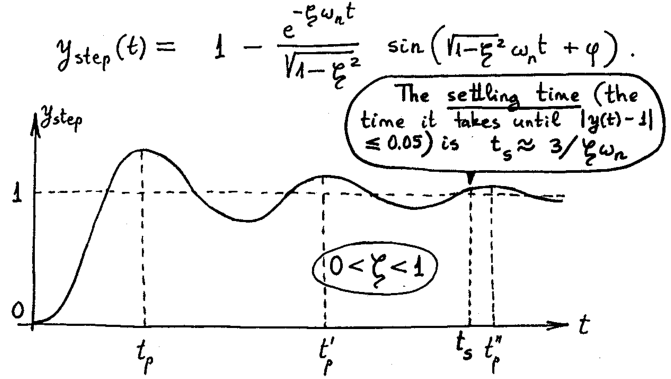 y_step(t) = 1 - e^{-ζω_n t} / √(1-ζ²) sin(√(1-ζ²) ω_n t + φ).
The settling time (the
time it takes until |y(t)-1|
≤ 0.05) is t_s ≈ 3/ζω_n
y_step
1
0 < ζ < 1
0
t
t_p t_p' t_s t_p''